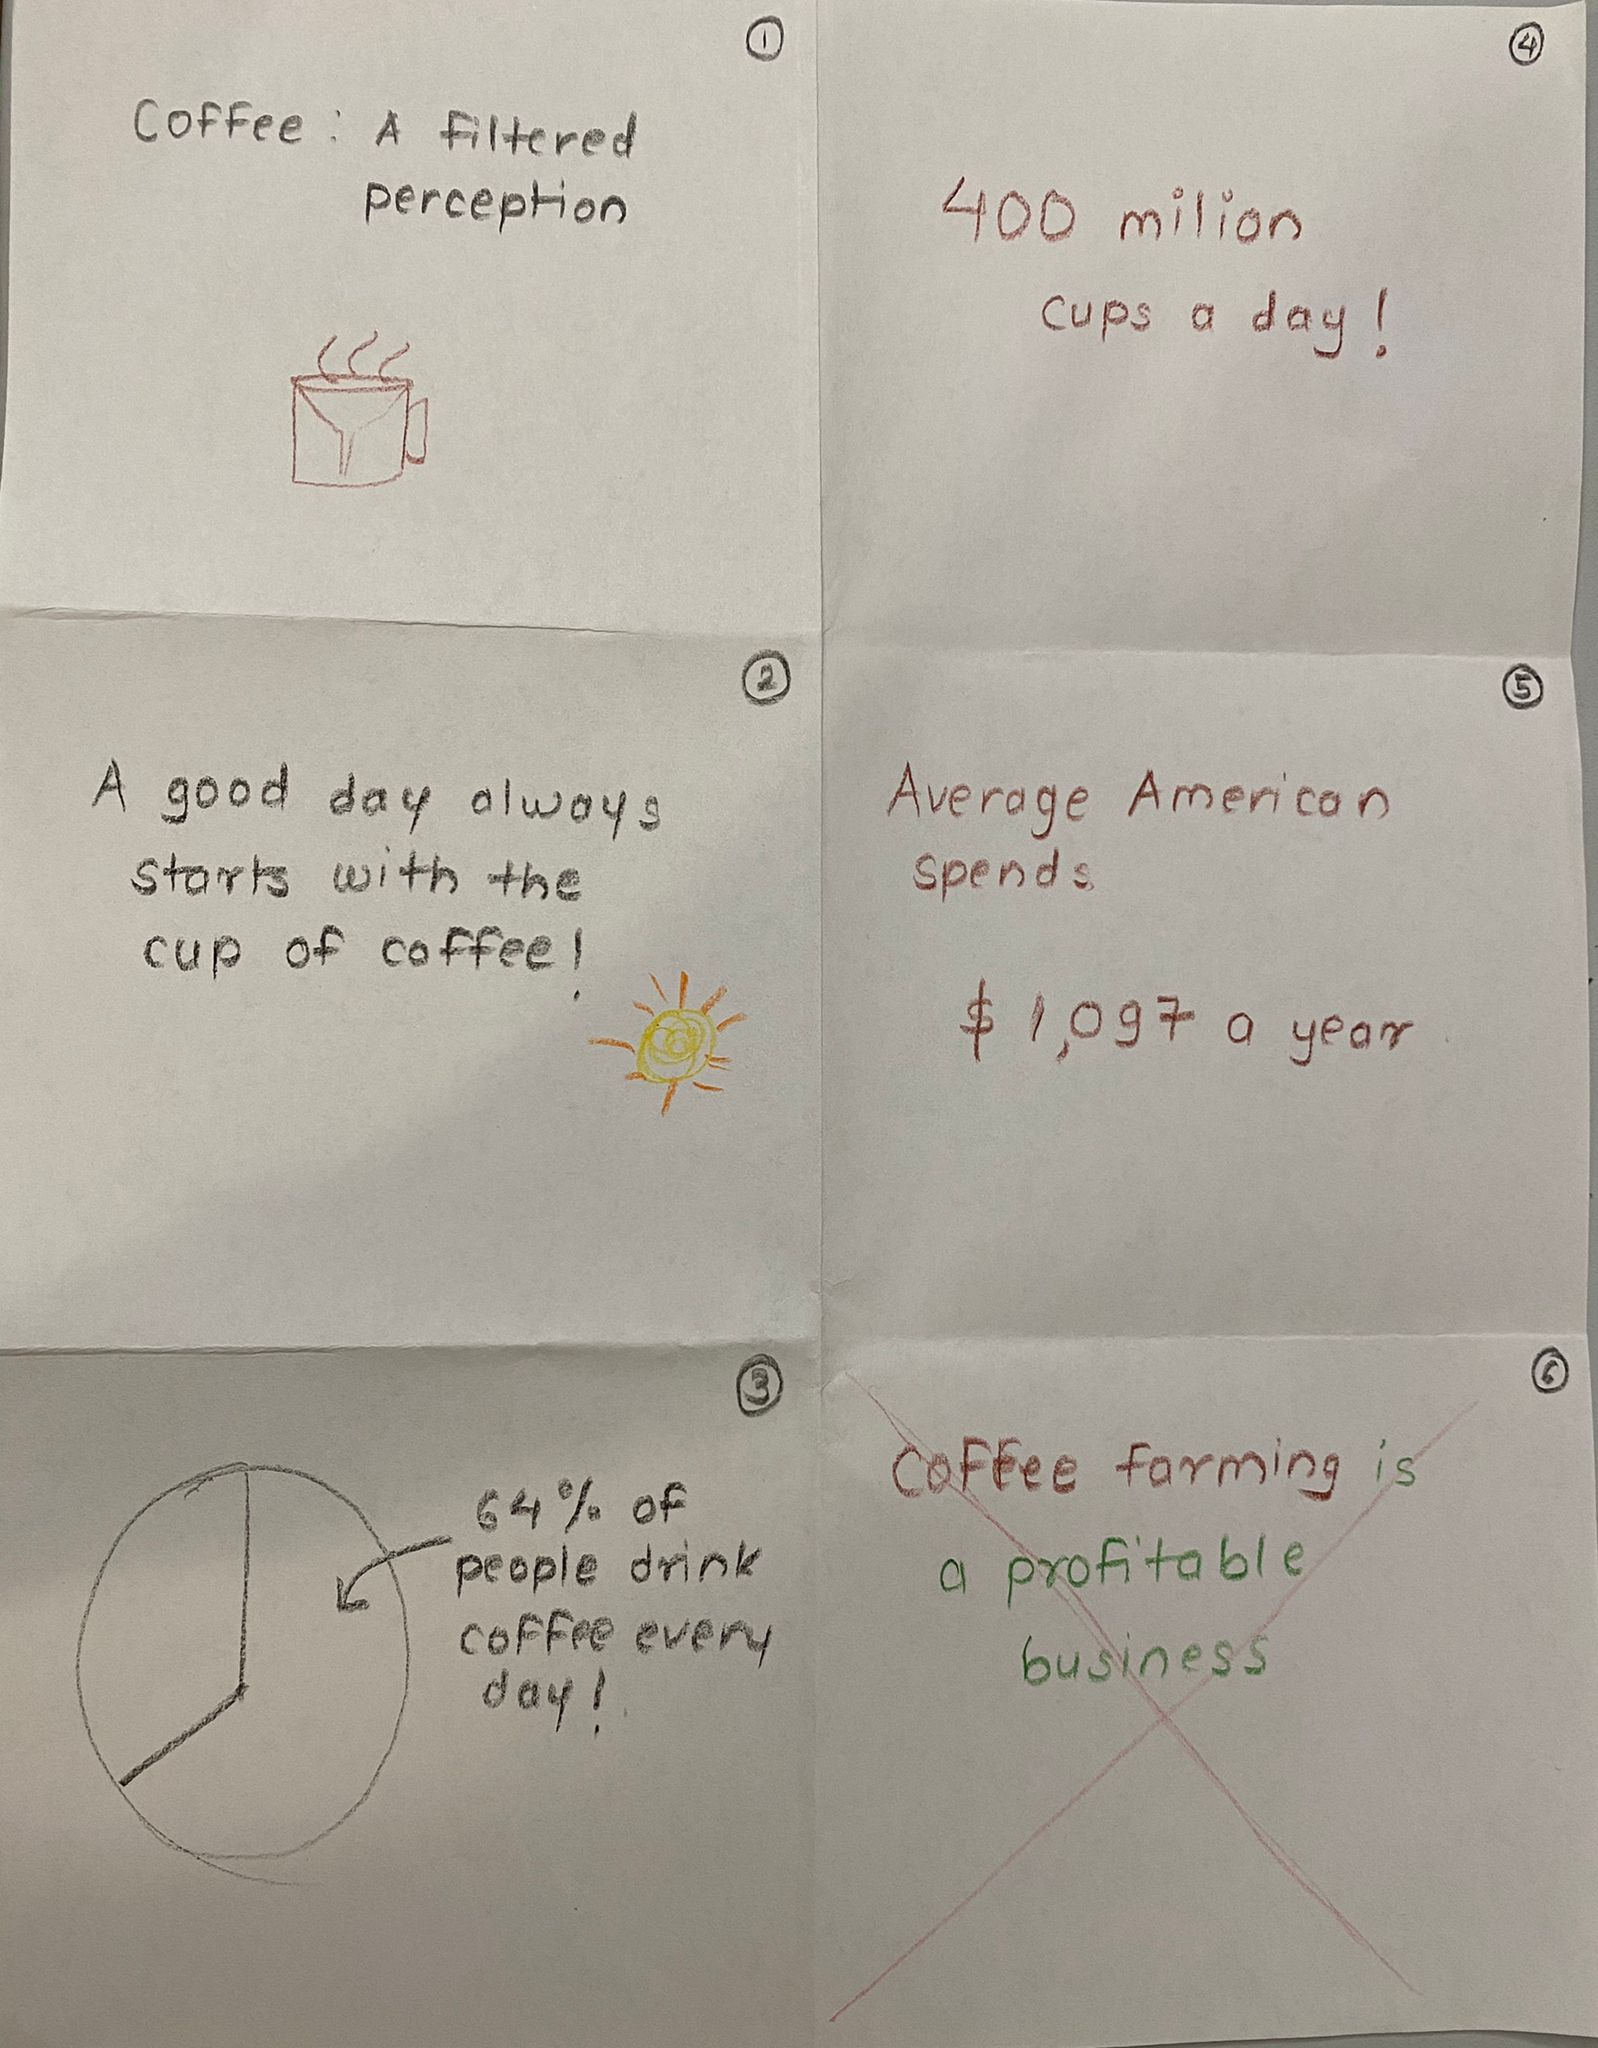 1
Coffee: A filtered
perception
2
A good day always
starts with the
cup of coffee!
3
64% of
people drink
coffee every
day!
4
400 milion
cups a day!
5
Average American
spends
$1,097 a year
6
Coffee farming is
a profitable
business